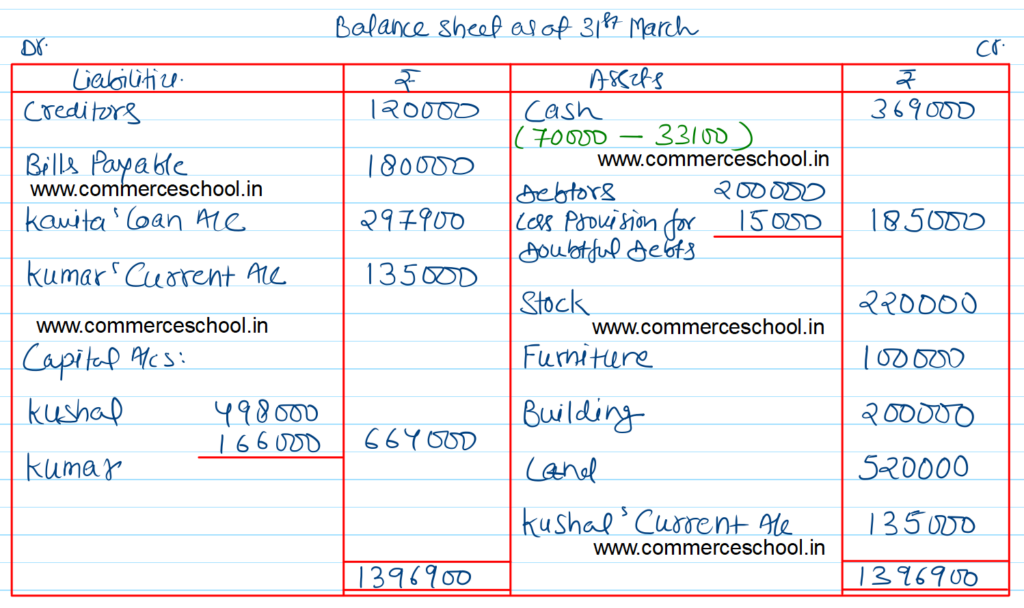 Balance sheet as at 31st March
Dr. Cr.
Liabilities ₹ Assets ₹
Creditors 120000 Cash 369000
(70000 — 33100)
www.commerceschool.in
Bills Payable 180000
www.commerceschool.in
Debtors 200000
Kavita's Loan A/c 297900 Less Provision for 15000 185000
Doubtful Debts
Kumar's Current A/c 135000
Stock 220000
www.commerceschool.in
www.commerceschool.in
Capital A/cs: Furniture 100000
Kushal 498000 Building 200000
166000 664000
Kumar Land 520000
Kushal's Current A/c 135000
www.commerceschool.in
1396900 1396900